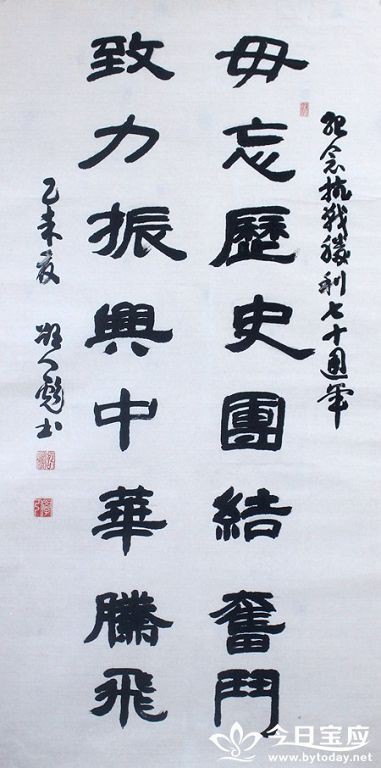 紀念抗戰勝利七十週年
毋忘歷史團結奮鬥
致力振興中華騰飛
乙未夏 彪书
今日宝应
www.bytoday.net